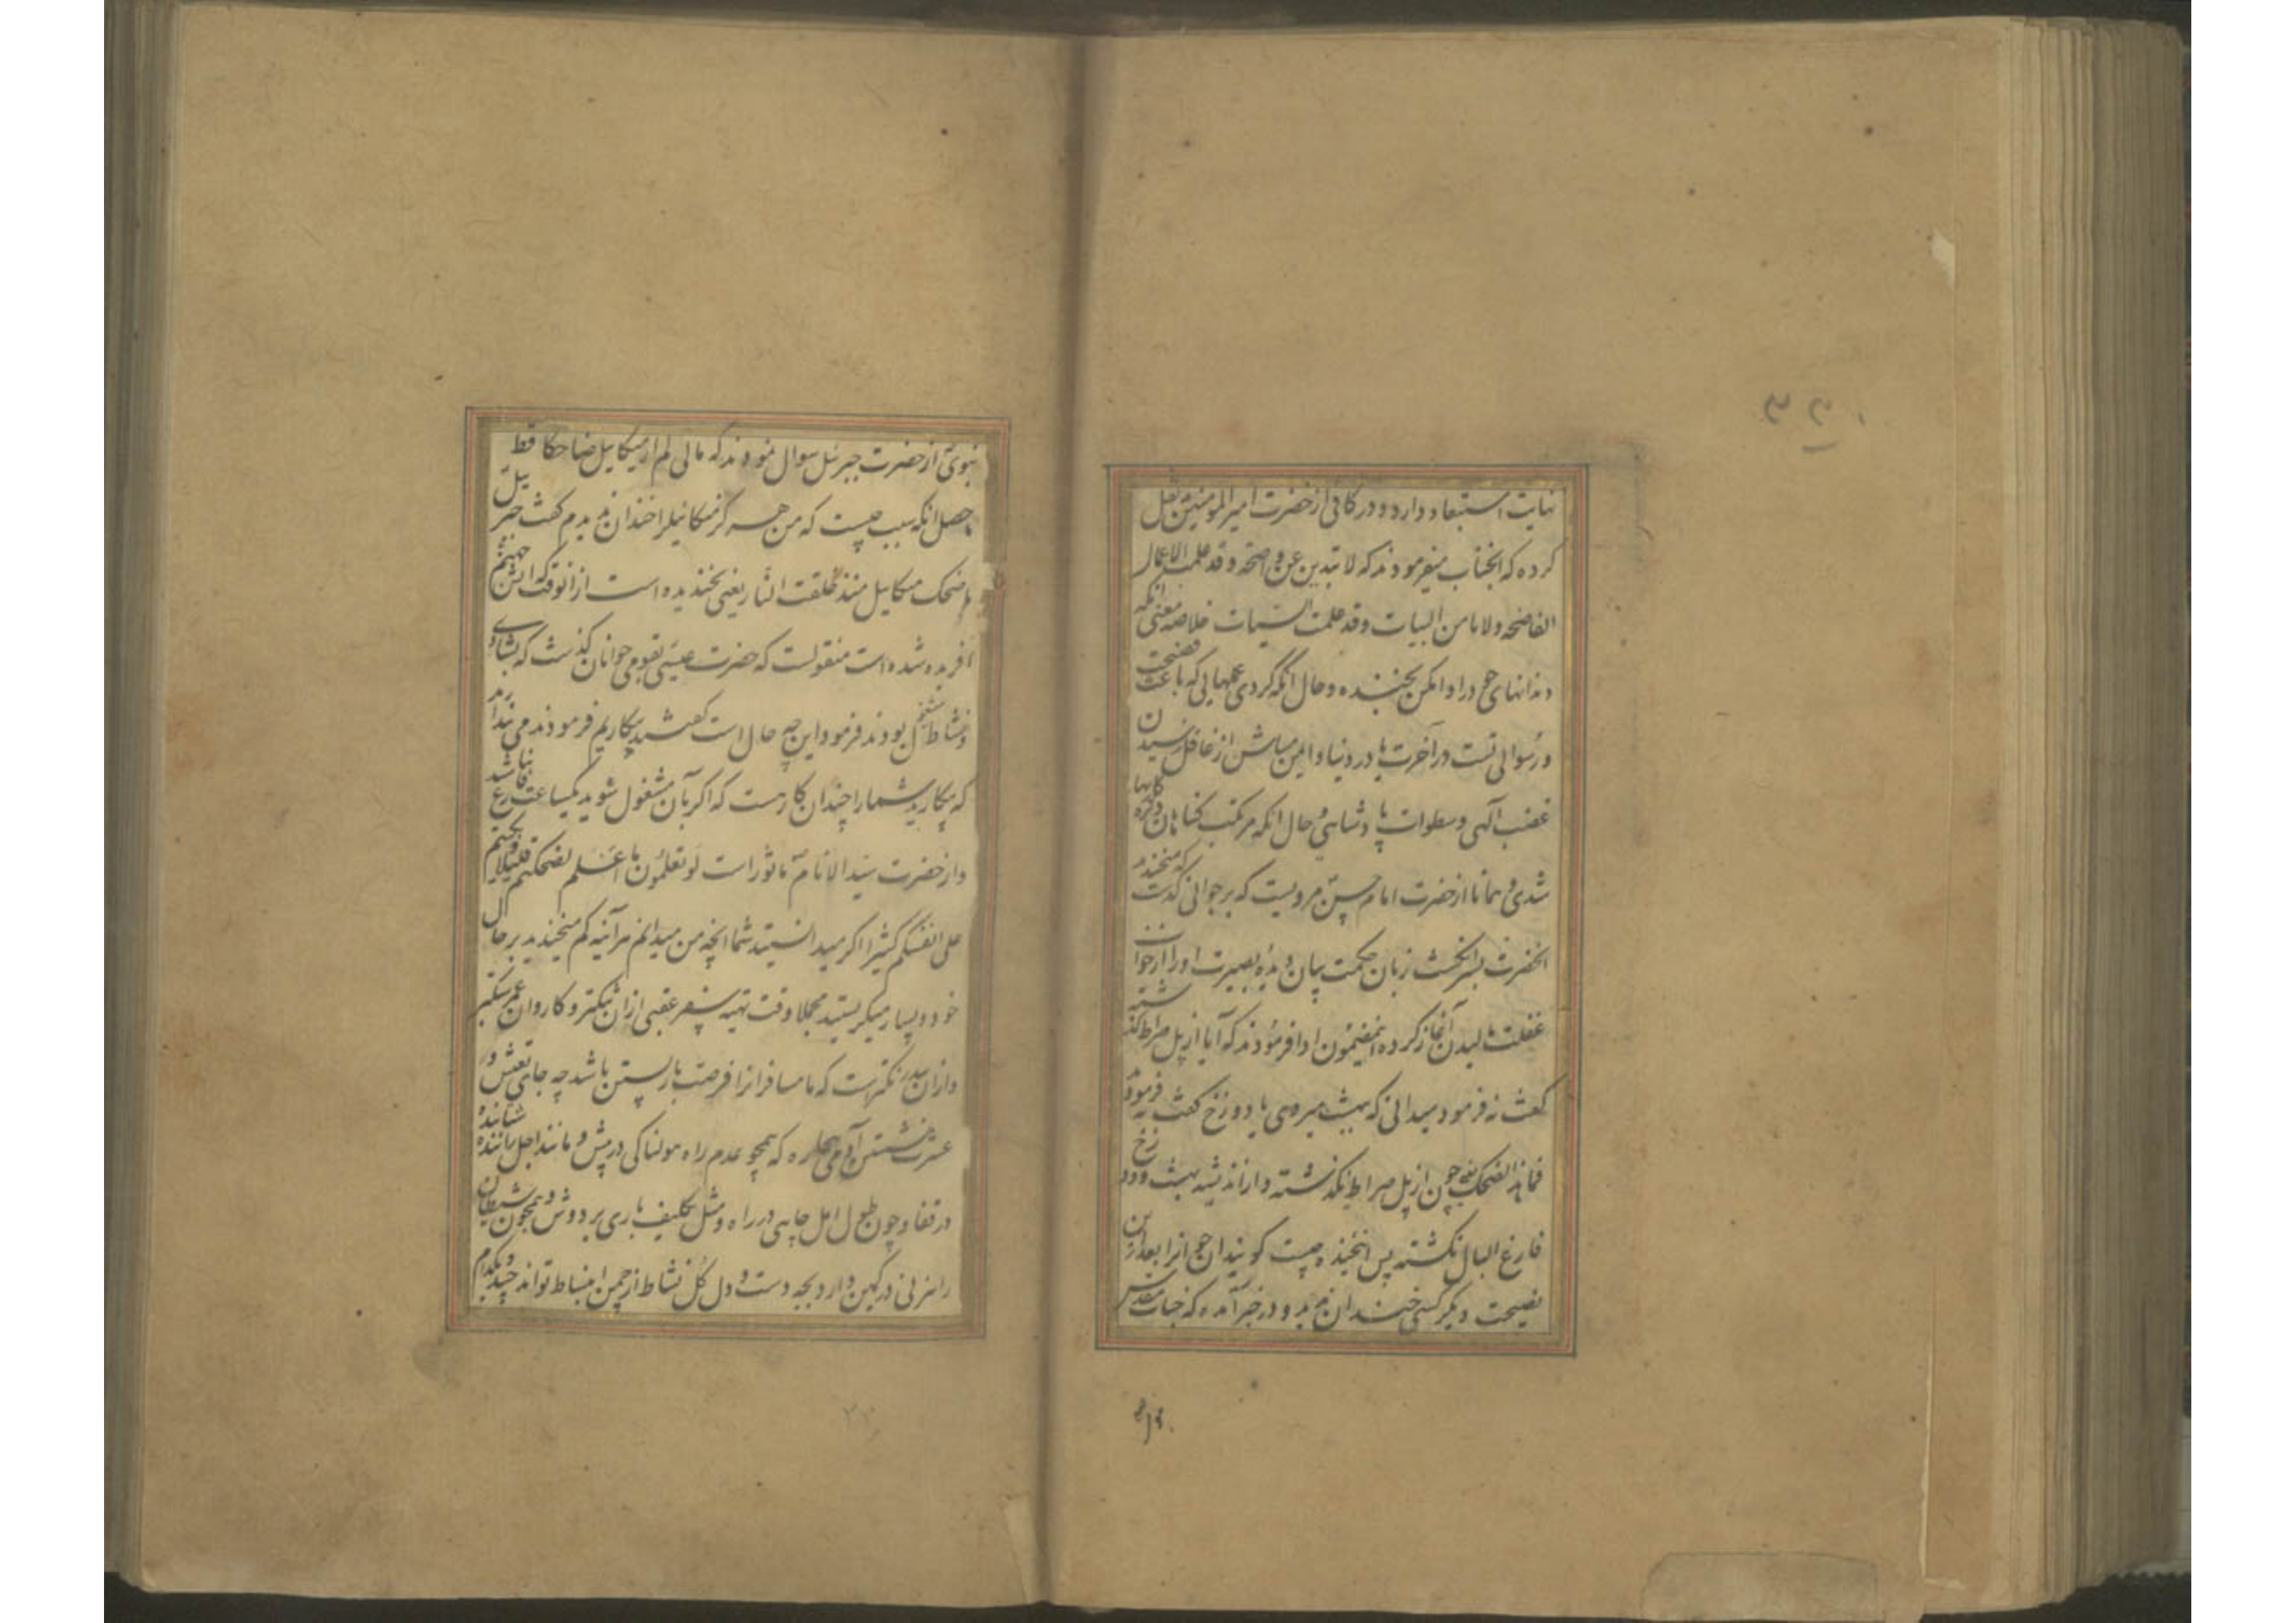 نهایت استبعاد دارد و در کافی از حضرت امیر المومنین نقل
کرده که انجناب میفرمودند که لا تبدین عن واضحة و قد علمت الاعمال
الفاضحه ولا تامن البیات وقد علمت السیات خلاصه معنی انکه
دندانهای خود را وا مکن بخنده و حال انکه کردی عملهایی که باعث فضیحت
و رسوائی تست در آخرت یا در دنیا و ایمن مباش از غافل رسیدن
غضب آلهی و سطوات پادشاهی و حال انکه مرتکب کناهان
شدی و همانا از حضرت امام حسن مرویست که بر جوانی کذشت که میخندد
انحضرت بسر انکشت زبان حکمت بیان دیده بصیرت او را از خواب
غفلت مالیدن آغاز کرده اینمضمون ادا فرمودند که آیا از پل صراط کذشته
کفت نه فرمود میدانی که ببهشت میروی یا دوزخ کفت نه فرمود
فما هذا الضحک یعنی چون از پل صراط نکذشته و از اندیشه بهشت و دوزخ
فارغ البال نکشته پس این خنده چیست کویند ان جوانرا بعد از این
نصیحت دیکر کسی خندان ندید و در خبر آمده که جناب مقدس
نبوی از حضرت جبرئیل سوال نمودند که مالی لم ار میکاییل ضاحکا قط
حاصل انکه سبب چیست که من هرکز میکائیلرا خندان ندیدم کفت جبرئیل
ما ضحک میکاییل منذ خلقت النار یعنی نخندیده است از انوقت که اتش جهنم
آفریده شده است منقولست که حضرت عیسی بقومی جوانان کذشت که بشادی
و نشاط مشغول بودند فرمود این چه حال است کفتند بیکاریم فرمودند می پندارید
که بیکارید شما را چندان کار هست که اکر بآن مشغول شوید یکساعت فارغ نباشید
و از حضرت سید الانام ماثور است لو تعلمون ما اعلم لضحکتم قلیلا و بکیتم
علی انفسکم کثیرا اکر میدانستید شما انچه من میدانم هرآینه کم میخندیدید بر حال
خود و بسیار میکریستید مجملا وقت تهیه سفر عقبی از ان تنکتر و کاروان عمر سبکسیر
که ما مسافرانرا فرصت بار بستن باشد چه جای تعیش و
عشرت نشستن آدمی بیچاره که همچو عدم راه هولناکی در پیش و مانند اجل
در قفا و چون طول امل چاهی در راه و مثل تکلیف باری بر دوش و همچون شیطان
راهزنی در کمین دارد بچه دست و دل کل نشاط از چمن انبساط تواند چید و بکدام